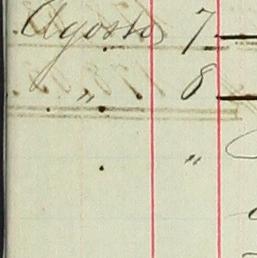 Agosto 7
" 8
"